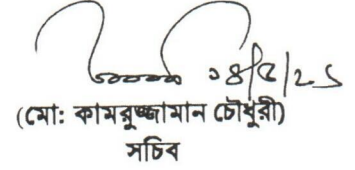 ১৪/৫/২১
(মো: কামরুজ্জামান চৌধুরী)
সচিব